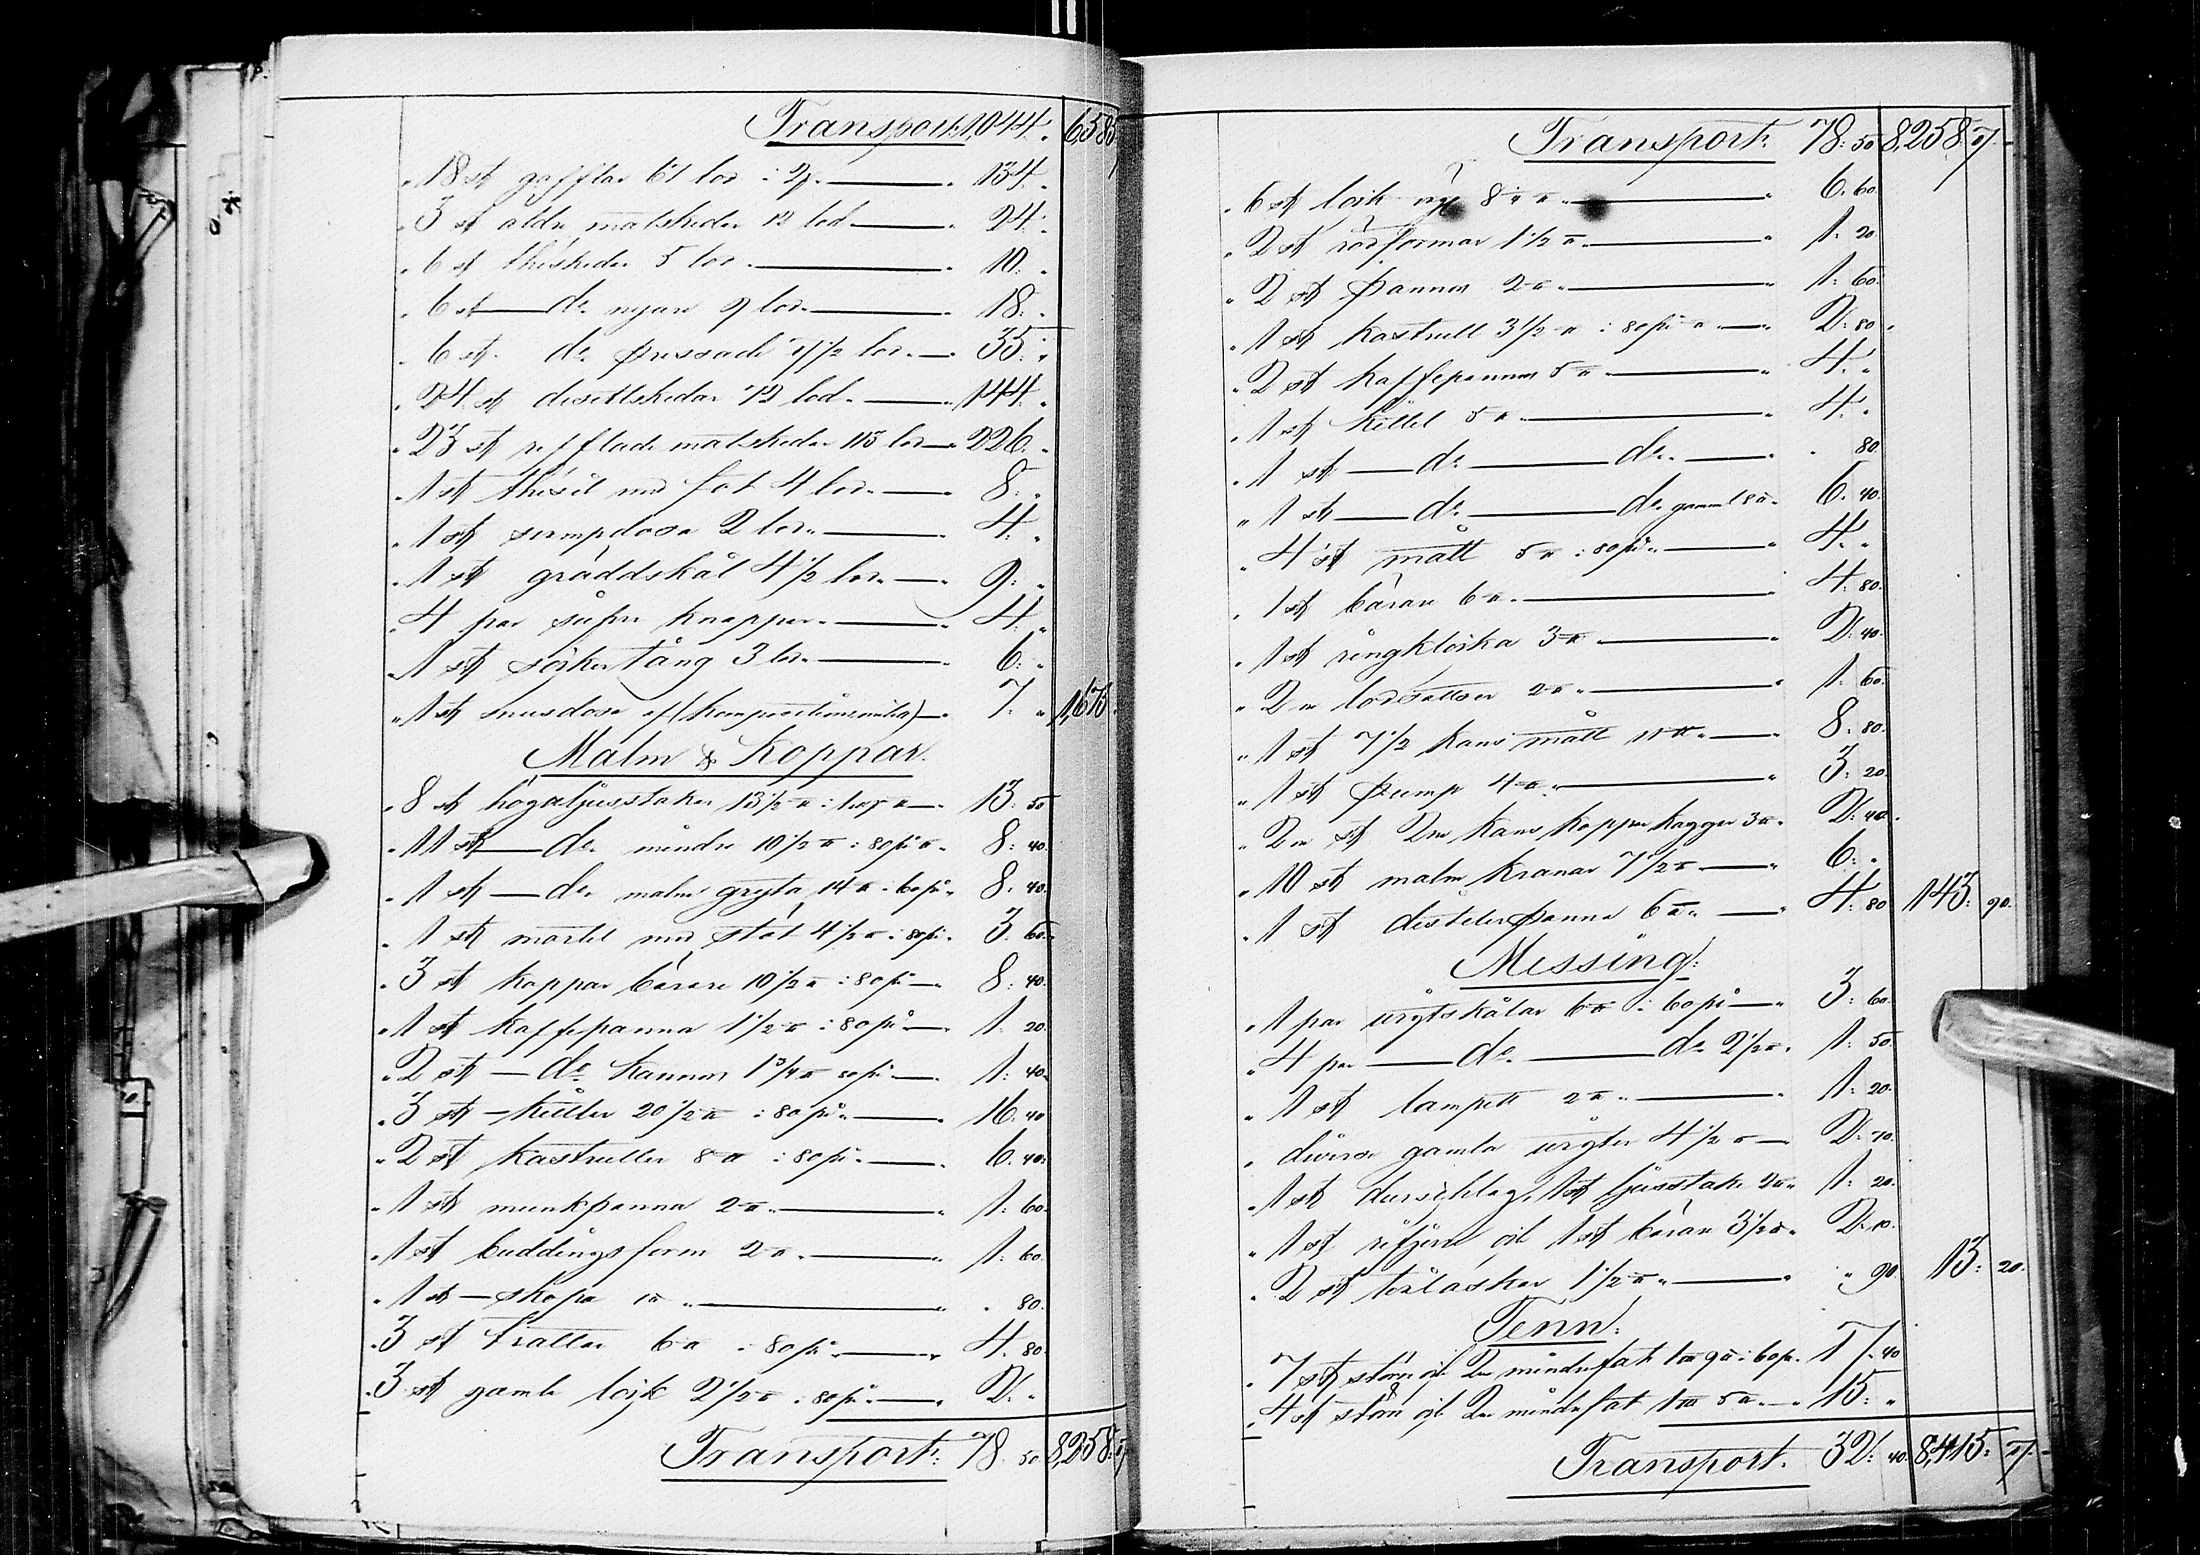 Transport: 1044. " 6585
" 18 st gafflar 67 lod : 2. — " 134. "
" 3 st äldre matskedar 12 lod — " 24: "
" 6 st theskedar 5 lod. — " 10. "
" 6 st — do nyare 9 lod — " 18: "
" 6 st. do pressade 17 1/2 lod. — " 35: "
" 24 st desertskedar 72 lod. — " 144. "
" 23 st refflade matskedar 113 lod — " 226. "
" 1 st thesil med fat 4 lod. — " 8: "
" 1 st svampdosa 2 lod. — " 4: "
" 1 st gräddskål 4 1/2 lod. — " 9: "
" 4 par knappar. — " 4. "
" 1 st sockertång 3 lod. — " 6: "
" 1 st snusdosa af — " 7: " 1,673 "
Malm & Koppar.
" 8 st höga ljusstakar 13 1/2 ℔ — 13: 50
" 11 st — do. mindre 10 1/2 ℔ : 80 pr ℔. 8: 40.
" 1 st — do. malm gryta 14 ℔ : 60 pr " 8. 40.
" 1 st mortel med stöt 4 1/2 ℔ : 80 pr. 3. 60.
" 3 st koppar bärare 10 1/2 ℔ : 80 pr — " 8: 40.
" 1 st kaffepanna 1 1/2 ℔ : 80 pr — " 1. 20.
" 2 st — do kannor 1 3/4 ℔ 80 pr — " 1: 40.
" 3 st — kittlar 20 1/2 ℔ : 80 pr. — 16. 40
" 2 st kastruller 8 ℔ : 80 pr. — 6. 40:
" 1 st munkpanna 2 ℔. — " 1. 60.
" 1 st buddingsform 2 ℔. — " 1: 60.
" 1 st — skopa 1 ℔ " — " " 80.
" 3 st trattar 6 ℔ : 80 pr. — " 4. 80.
" 3 st gamla lock 2 1/2 ℔ : 80 pr. — " 2: "
Transport: 78. 50 8,258: 7
Transport: 78: 50 8,258: 7. -
" 6 st lock 8 ℔. — " 6. 60.
" 2 st formar 1 1/2 ℔. — " 1: 20
" 2 st pannor 2 ℔. — " 1: 60.
" 1 st kastrull 3 1/2 ℔ : 80 pr ℔. — " 2: 80.
" 2 st kaffepannor 5 ℔. — " 4. "
" 1 st kittel 5 ℔. — " 4. "
" 1 st — do. — do. — " " 80.
" 1 st — do. — do. gammal 8 ℔. 6. 40.
" 4 st mått 5 ℔ : 80 pr. — " 4. "
" 1 st bärare 6 ℔. — 4. 80.
" 1 st ringklocka 3 ℔. — " 2: 40.
" 2 ne lodsattser 2 ℔. — " 1. 60.
" 1 st 7 1/2 kans mått 11 ℔. — " 8. 80.
" 1 st pump 4 ℔. — " 3: 20.
" 2 ne st 2 ne kans koppar kaggar 3 ℔. 2: 40.
" 10 st malm kranar 7 1/2 ℔. — " 6: "
" 1 st destilerpanna 6 ℔. — " 4: 80 143: 90.
Messing:
" 1 par vigtskålar 6 ℔ : 60 pr — " 3: 60.
" 4 par — do. — do. 2 1/2 ℔. 1: 50.
" 1 st lampett 2 ℔. — " 1: 20.
" diverse gamla vigter 4 1/2 ℔ — 2: 70.
" 1 st durschlag, 1 st ljusstake 2 ℔. 1: 20.
" 1 st rifjern och 1 st bärare 3 1/2 ℔. 2: 10.
" 2 st 1 1/2 ℔. — " " 90 13: 20.
Tenn:
" 7 st större och 2 ne mindre fat : 60 pr. 17. 40
" 4 st större och 2 ne mindre fat — " 15: "
Transport. 32: 40. 8,415: 7. -